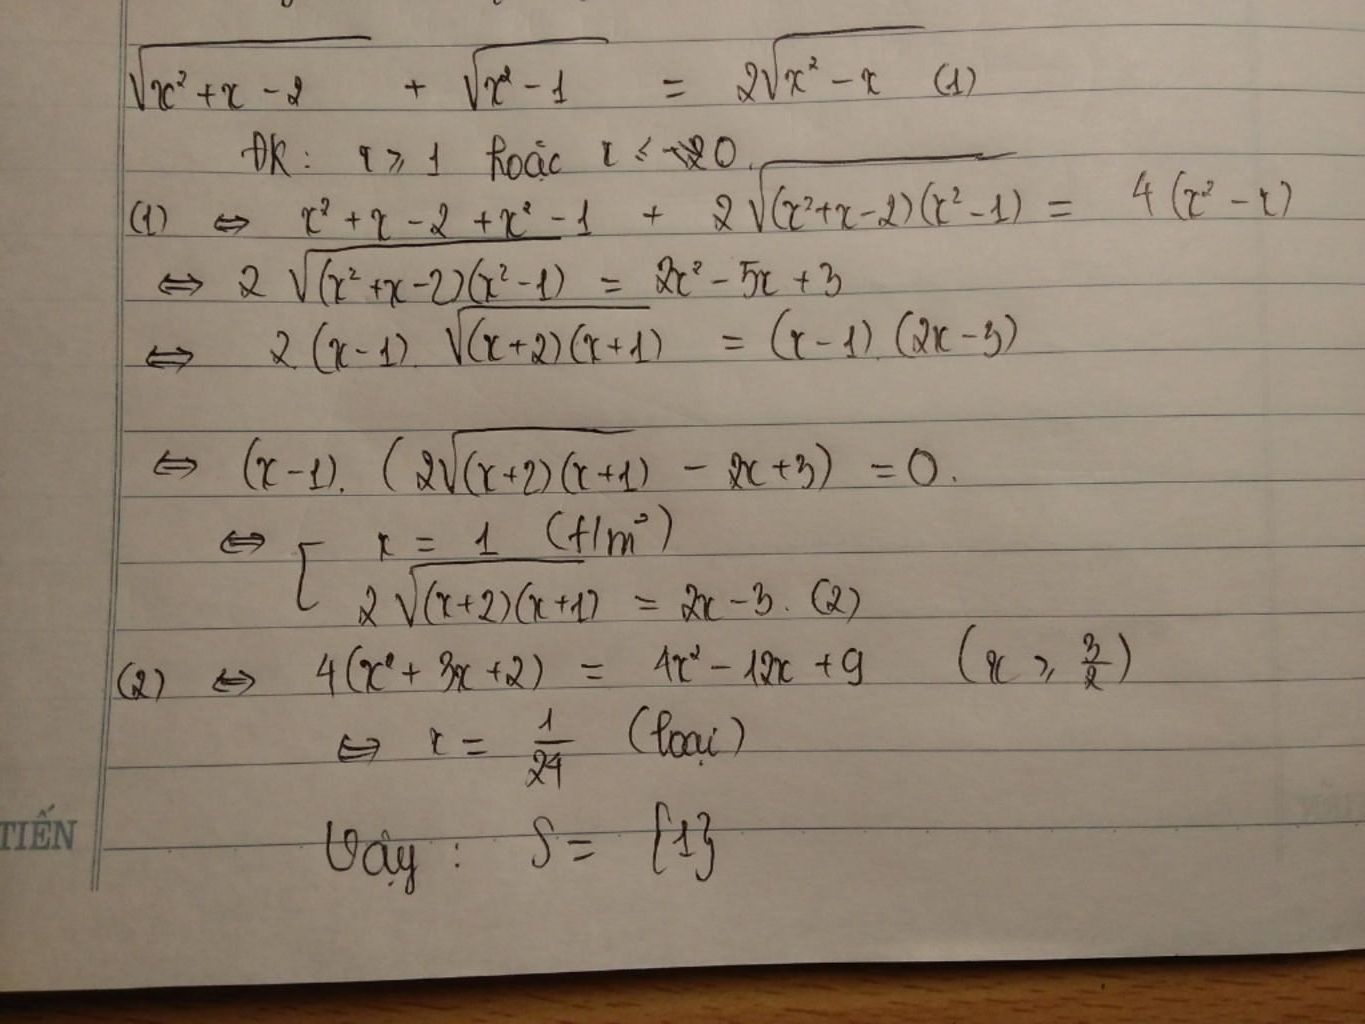 √(x² + x - 2) + √(x² - 1) = 2√(x² - x) (1)
ĐK: x ≥ 1 hoặc x ≤ 0.
(1) ⇔ x² + x - 2 + x² - 1 + 2√((x²+x-2)(x²-1)) = 4(x² - x)
⇔ 2√((x²+x-2)(x²-1)) = 2x² - 5x + 3
⇔ 2(x-1).√((x+2)(x+1)) = (x-1).(2x-3)
⇔ (x-1).(2√((x+2)(x+1)) - 2x+3) = 0.
⇔ [ x = 1 (t/m)
2√((x+2)(x+1)) = 2x-3. (2)
(2) ⇔ 4(x² + 3x + 2) = 4x² - 12x + 9 (x ≥ 3/2)
⇔ x = 1/24 (loại)
TIẾN
Vậy : S = {1}